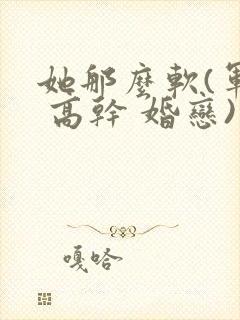 她那麼軟(軍
高幹 婚戀)
嘎哈